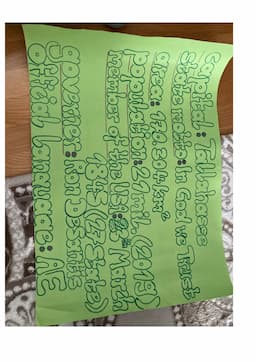 capital: Tallahassee
state motto: In God we Trust
area: 170.304 km²
population: 21 mil. (2019)
member of the USA: 3rd March
1845 (27. State)
governer: Ron DeSantis
official language: AE